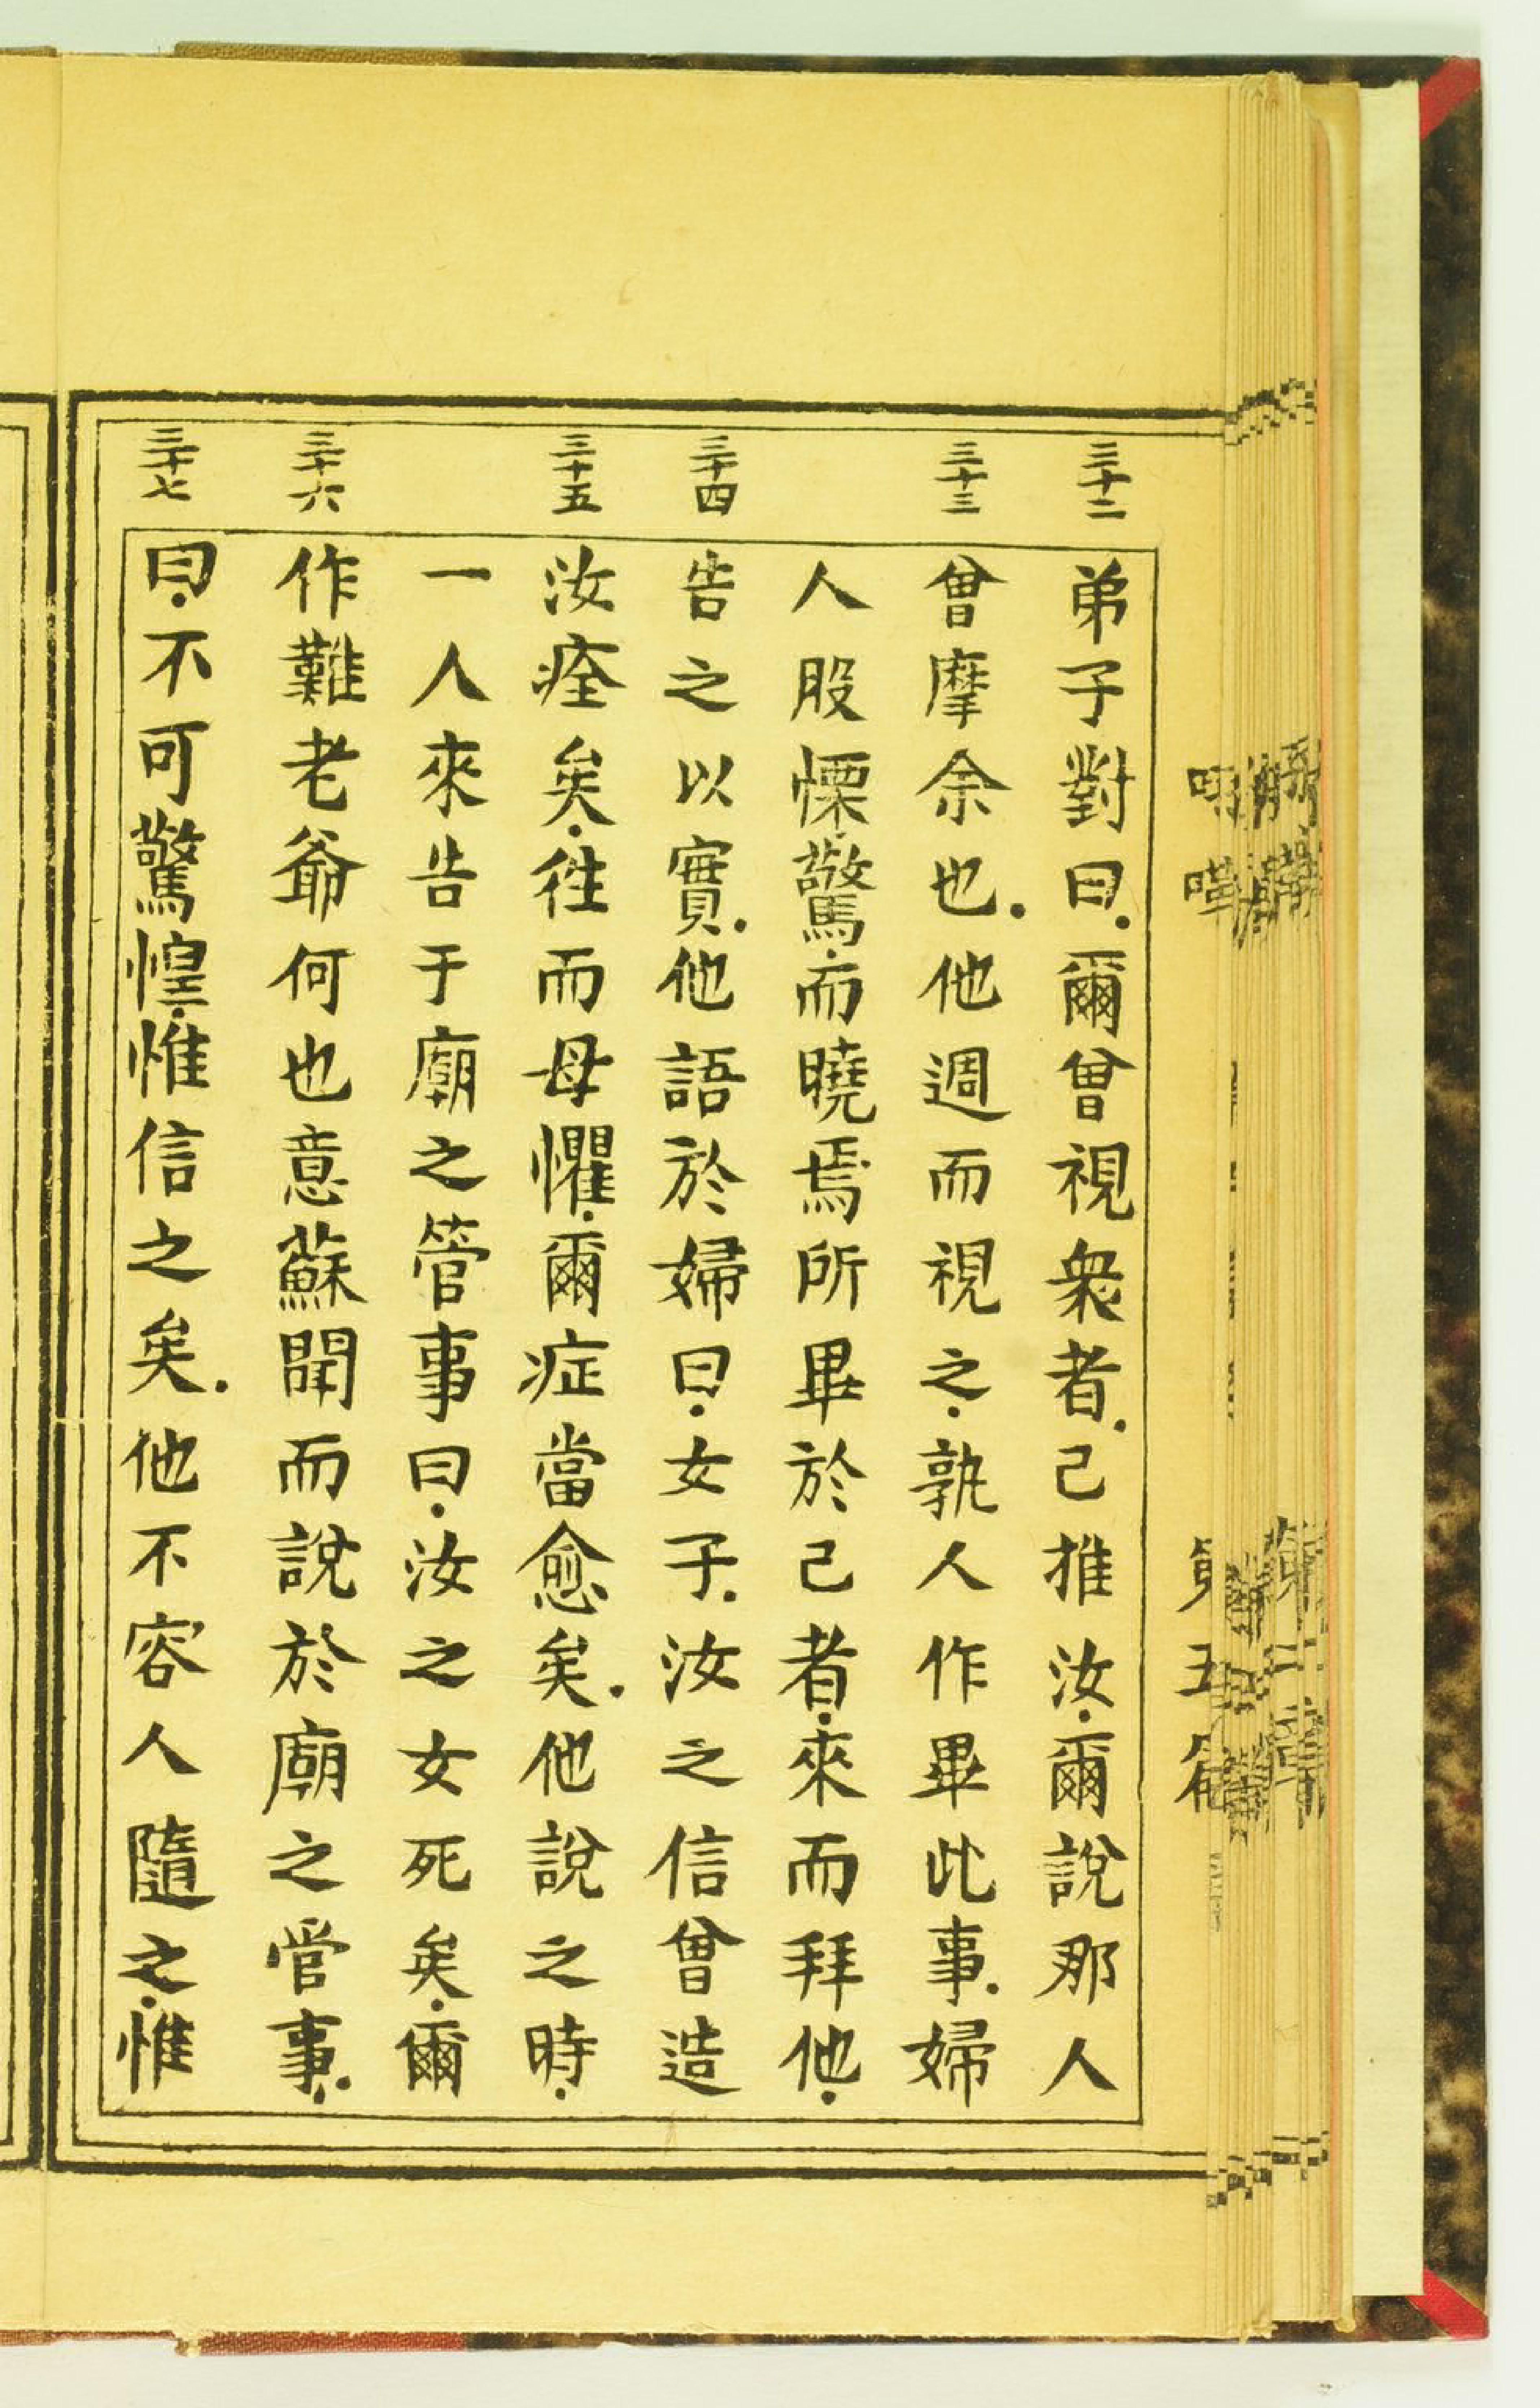 三十二 弟子對曰．爾曾視衆者．己推汝．爾說那人
三十三 曾摩余也．他週而視之．孰人作畢此事．婦
人股慄驚．而曉焉所畢於己者．來而拜他．
三十四 告之以實．他語於婦曰．女子．汝之信曾造
三十五 汝痊矣．徃而毋懼．爾症當愈矣．他說之時．
一人來告于廟之管事曰．汝之女死矣．爾
三十六 作難老爺何也意蘇聞而說於廟之管事．
三十七 曰．不可驚惶．惟信之矣．他不容人隨之．惟